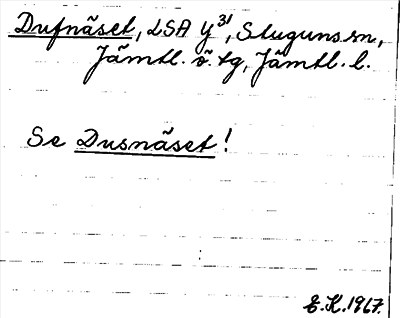 Dufnäset, LSA y³¹, Stuguns sn,
Jämtl. ö. tg, Jämtl. l.
Se Dusnäset!
E.K. 1967.